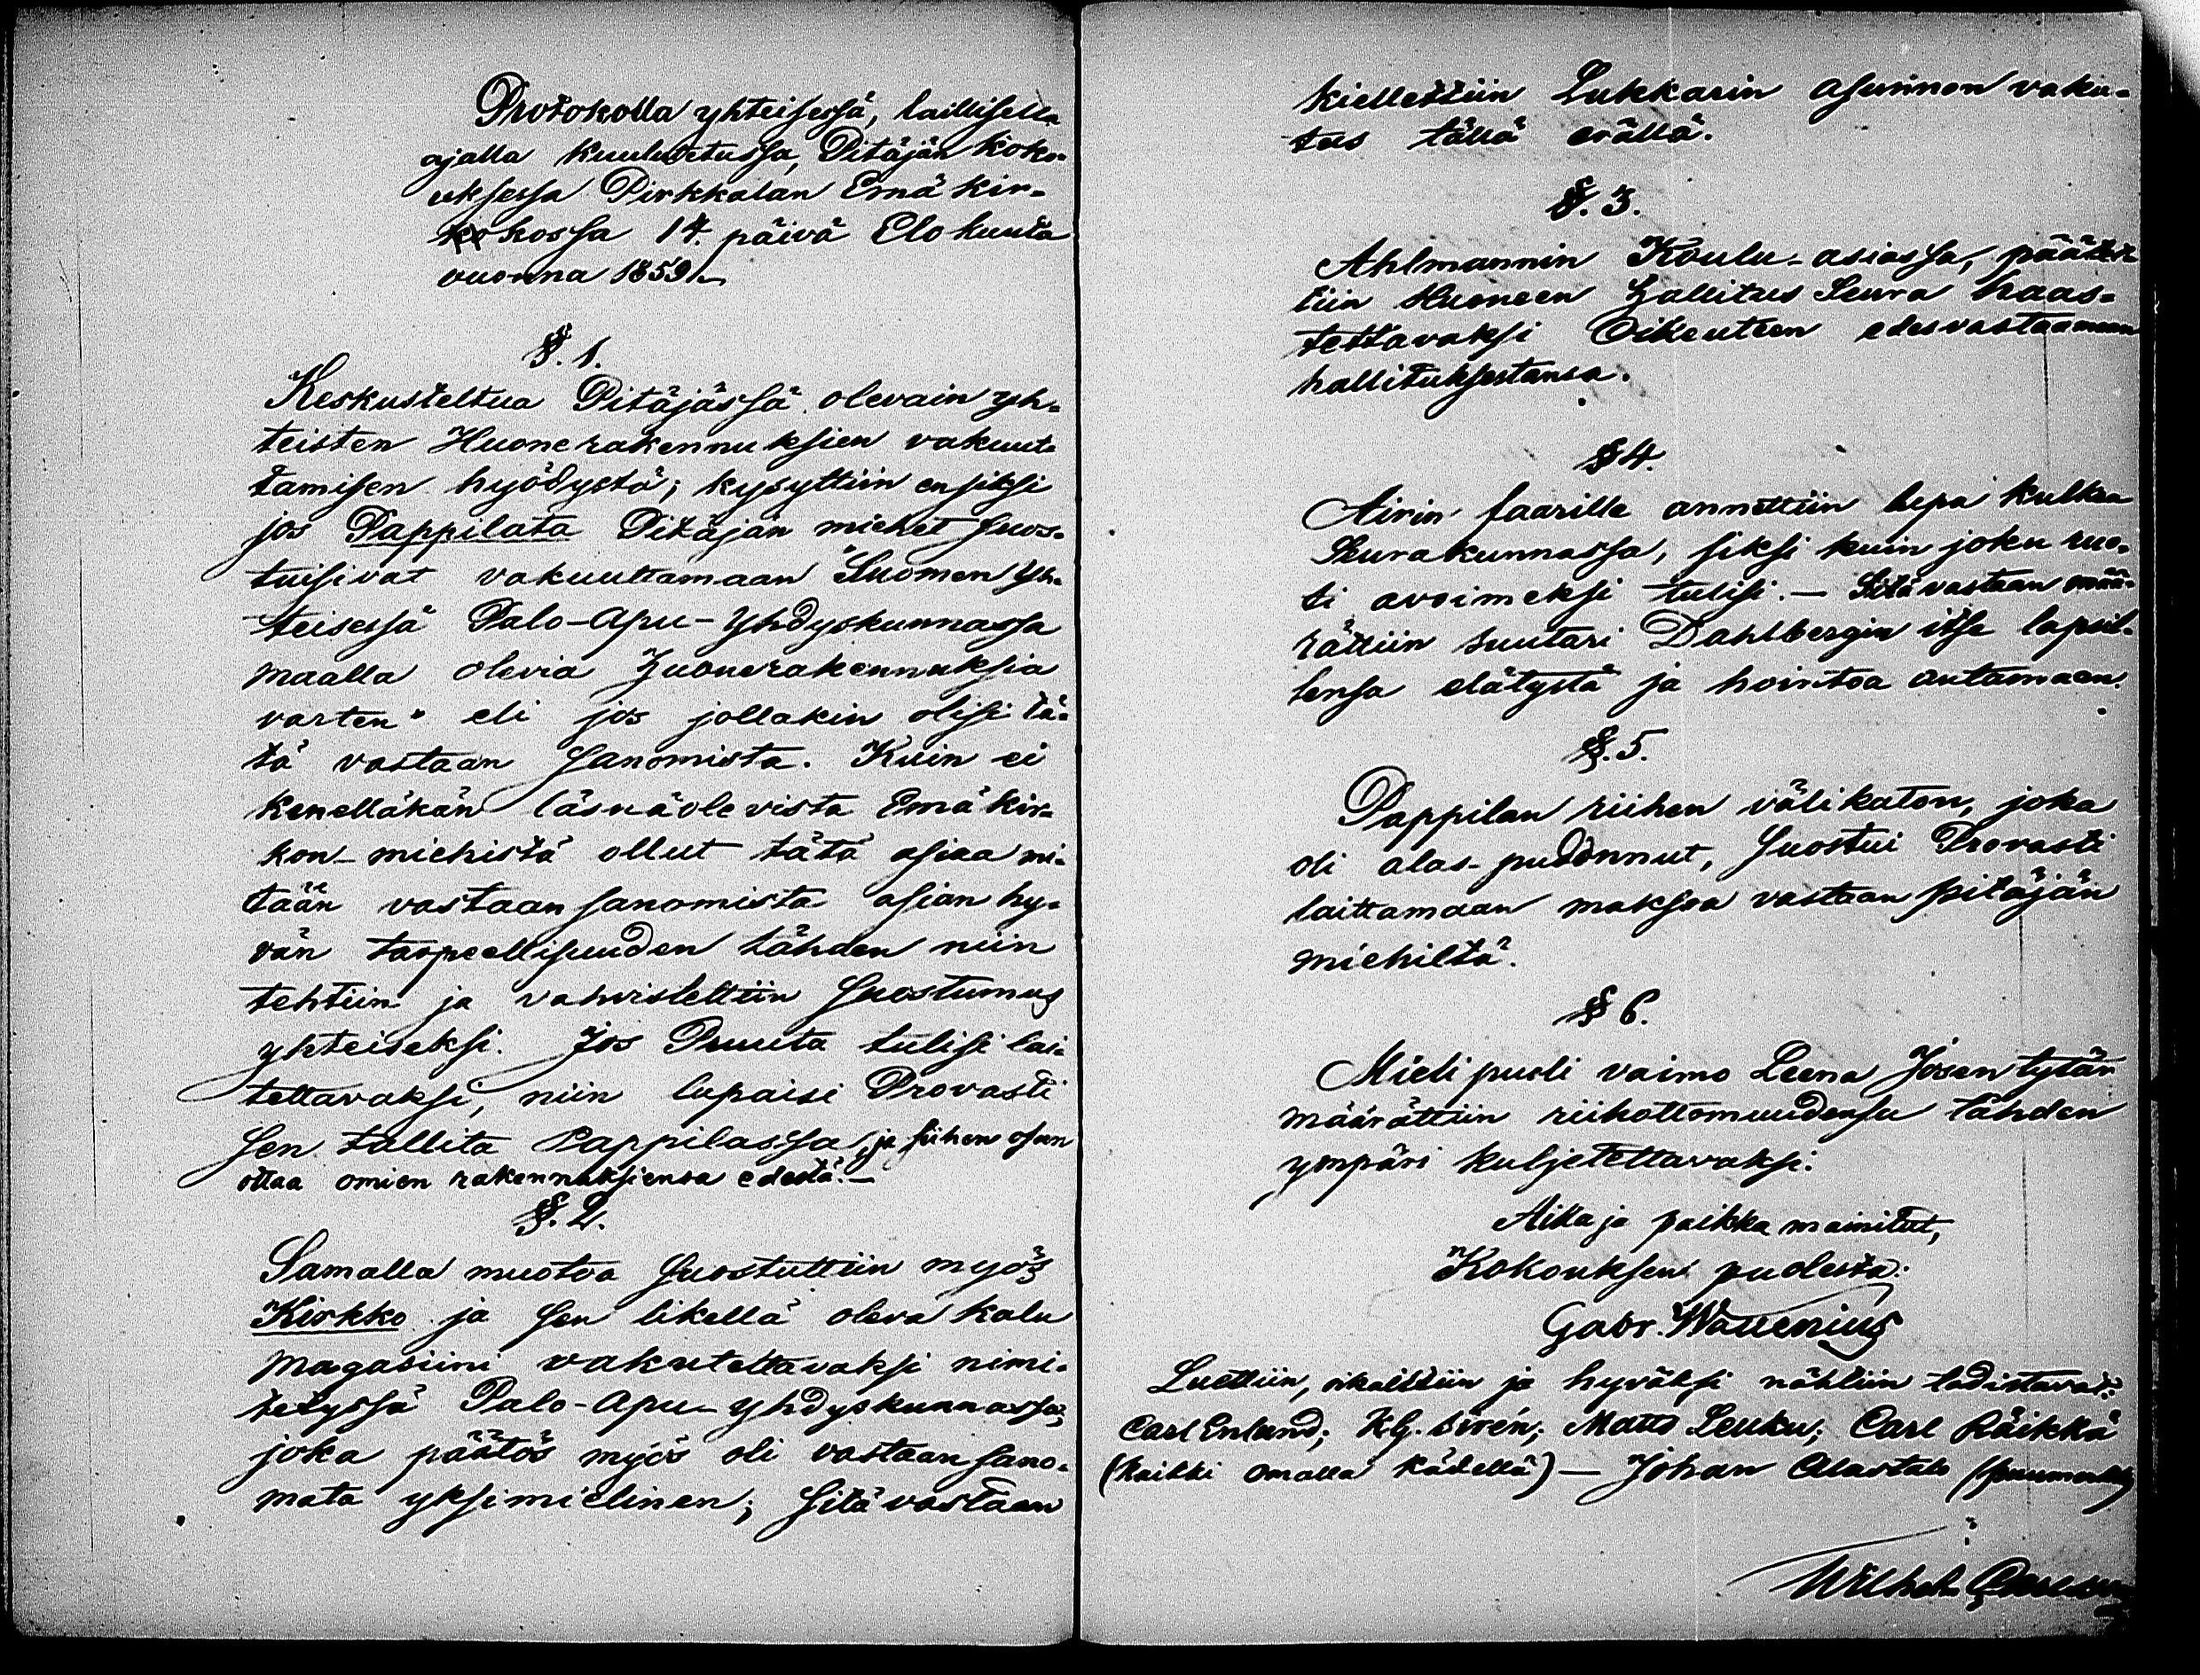 Protokolla yhteisessä, laillisella
ajalla kuulutetussa, Pitäjän koko-
uksessa Pirkkalan Emäkir-
kossa 14. päivä Elokuuta
vuonna 1859.
§. 1.
Keskusteltua Pitäjässä olevain yh-
teisten Huonerakennuksien vakuut-
tamisen hyödystä; kysyttiin ensiksi
jos Pappilata Pitäjän miehet suos-
tuisivat vakuuttamaan "Suomen Yh-
teisessä Palo-Apu-Yhdyskunnassa
maalla olevia Huonerakennuksia
varten" eli jos jollakin olisi tä-
tä vastaan sanomista. Kuin ei
kenelläkän läsnäolevista Emäkir-
kon-miehistä ollut tätä asiaa mi-
tään vastaan sanomista asian hy-
vän tarpeellisuuden tähden niin
tehtiin ja vahvistettiin Suostumus
yhteiseksi. Jos Ruuta tulisi lai-
tettavaksi, niin lupaisi Provasti
sen tallita Pappilassa, ja siihen osan
ottaa omien rakennuksiensa edestä. —
§. 2.
Samalla muotoa suostuttiin myös
Kirkko ja sen likellä oleva kalu
magasiini vakuutettavaksi nimi-
tetyssä Palo-Apu-Yhdyskunnassa;
joka päätös myös oli vastaan sano-
mata yksimielinen; sitä vastaan
kiellettiin Lukkarin asunnon vaku-
tus tällä erällä.
§. 3.
Ahlmannin Koulu-asiassa, päätet-
tiin Huoneen Hallitus Seura haas-
tettavaksi Oikeuteen edesvastaamaan
hallituksestansa.
§ 4.
Airin faarille annettiin lupa kulkea
Seurakunnassa, siksi kuin joku ruo-
ti avoimeksi tulisi. — Sitä vastaan mää-
rättiin suutari Dahlbergin itse lapsil-
lensa elätystä ja hointoa antamaan.
§. 5.
Pappilan riihen välikaton, joka
oli alas-pudonnut, suostui Provasti
laittamaan maksoa vastaan pitäjän
miehiltä.
§ 6.
Mielipuoli vaimo Leena Josen tytän
määrättiin riikottomuudensa tähden
ympäri kuljetettavaksi.
Aika ja paikka mainitut,
Kokouksen puolesta:
Gabr. Wallenius
Luettiin, oikaistiin ja hyväksi nähtiin todistavat:
Carl Enlund; K.G. Sirén; Matts Leuku; Carl Räikkä
(kaikki omalla kädellä) — Johan Alastalo (puumerkki)
Wilhelm